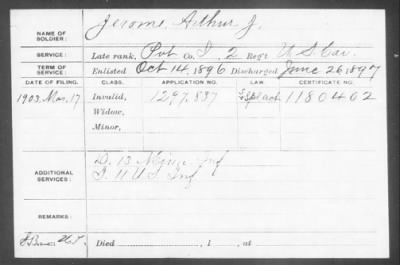 NAME OF SOLDIER: Jerome, Arthur J.
SERVICE: Late rank, Pvt Co. I, 2 Reg't U S Cav.
TERM OF SERVICE: Enlisted Oct 14, 1896 Discharged June 26, 1897
DATE OF FILING. CLASS. APPLICATION NO. LAW. CERTIFICATE NO.
1903 Mar. 17 Invalid, 1297.837 1180462
Widow,
Minor,
ADDITIONAL SERVICES: D. 13 Minn. Inf
I. 11 U.S. Inf
REMARKS:
Died , 1 , at